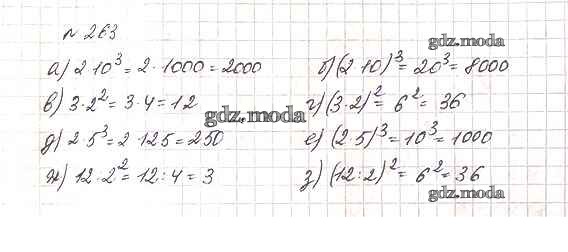 № 263
gdz.moda
а) 2·10³ = 2·1000 = 2000 б) (2·10)³ = 20³ = 8000
в) 3·2² = 3·4 = 12 г) (3·2)² = 6² = 36
gdz.moda
д) 2·5³ = 2·125 = 250 е) (2·5)³ = 10³ = 1000
ж) 12·2² = 12:4 = 3 з) (12:2)² = 6² = 36
gdz.moda